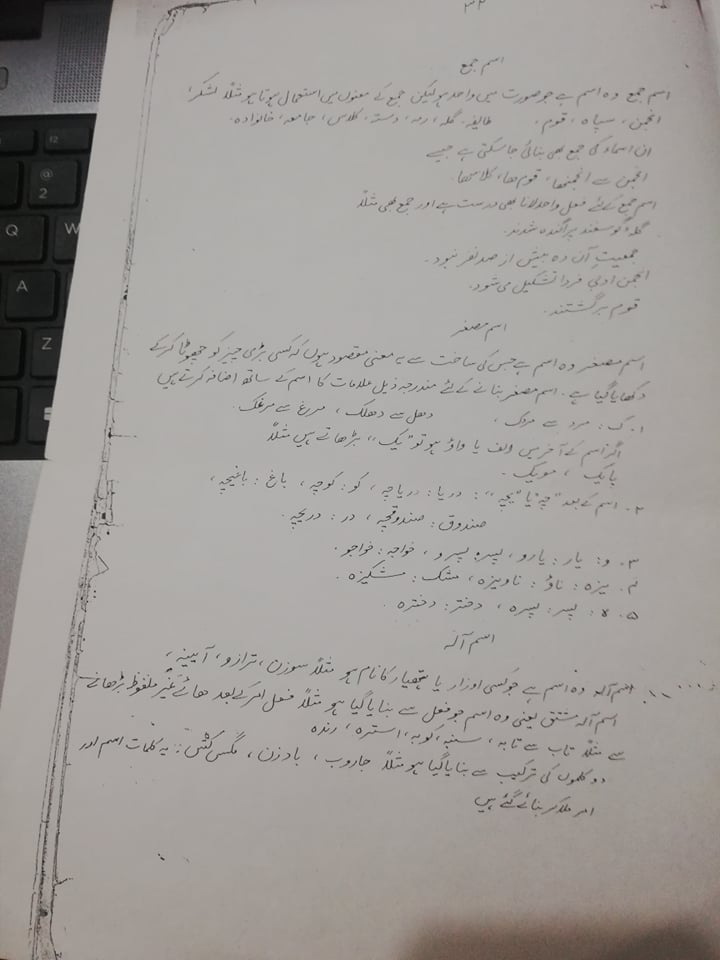 ۳۲
اسم جمع
اسم جمع وہ اسم ہے جو صورت میں واحد ہو لیکن جمع کے معنوں میں استعمال ہوتا ہو مثلاً لشکر،
انجمن، سپاہ، قوم، طائفہ، گلہ، رمہ، دستہ، کلاس، جامعہ، خانوادہ۔
ان اسماء کی جمع بھی بنائی جا سکتی ہے جیسے
انجمن سے انجمنھا، قوم ھا، کلاسھا۔
اسم جمع کے لئے فعل واحد لانا بھی درست ہے اور جمع بھی مثلاً
گلہ گوسفند پراگندہ شدند۔
جمعیت آن دہ بیش از صد نفر نبود۔
انجمن ادبی فردا تشکیل می شود۔
قوم برگشتند۔
اسم مصغر
اسم مصغر وہ اسم ہے جس کی ساخت سے یہ معنی مقصود ہوں کہ کسی بڑی چیز کو چھوٹا کر کے
دکھایا گیا ہے۔ اسم مصغر بنانے کے لئے مندرجہ ذیل علامات کا اسم کے ساتھ اضافہ کرتے ہیں
۱۔ ک: مرد سے مردک، دھل سے دھلک، مرغ سے مرغک۔
اگر اسم کے آخر میں الف یا واؤ ہو تو "یک" بڑھاتے ہیں مثلاً
پایک، مویک۔
۲۔ اسم کے بعد "چہ" یا "یچہ": دریا: دریاچہ، کو: کوچہ، باغ: باغیچہ،
صندوق: صندوقچہ، در: دریچہ۔
۳۔ و: یار: یارو، پسر: پسرو، خواجہ: خواجو۔
۴۔ یزہ: ناؤ: ناویزہ، مشک: مشکیزہ۔
۵۔ ہ: پسر: پسرہ، دختر: دخترہ۔
اسم آلہ
اسم آلہ وہ اسم ہے جو کسی اوزار یا ہتھیار کا نام ہو مثلاً سوزن، ترازو، آیینہ،
اسم آلہ مشتق یعنی وہ اسم جو فعل سے بنایا گیا ہو مثلاً فعل امر کے بعد ھائے غیر ملفوظ بڑھانے
سے مثلاً تاب سے تابہ، سنبہ، کوبہ، استرہ، رندہ
دو کلموں کی ترکیب سے بنایا گیا ہو مثلاً جاروب، بادزن، مگس کش: یہ کلمات اسم اور
امر ملا کر بنائے گئے ہیں